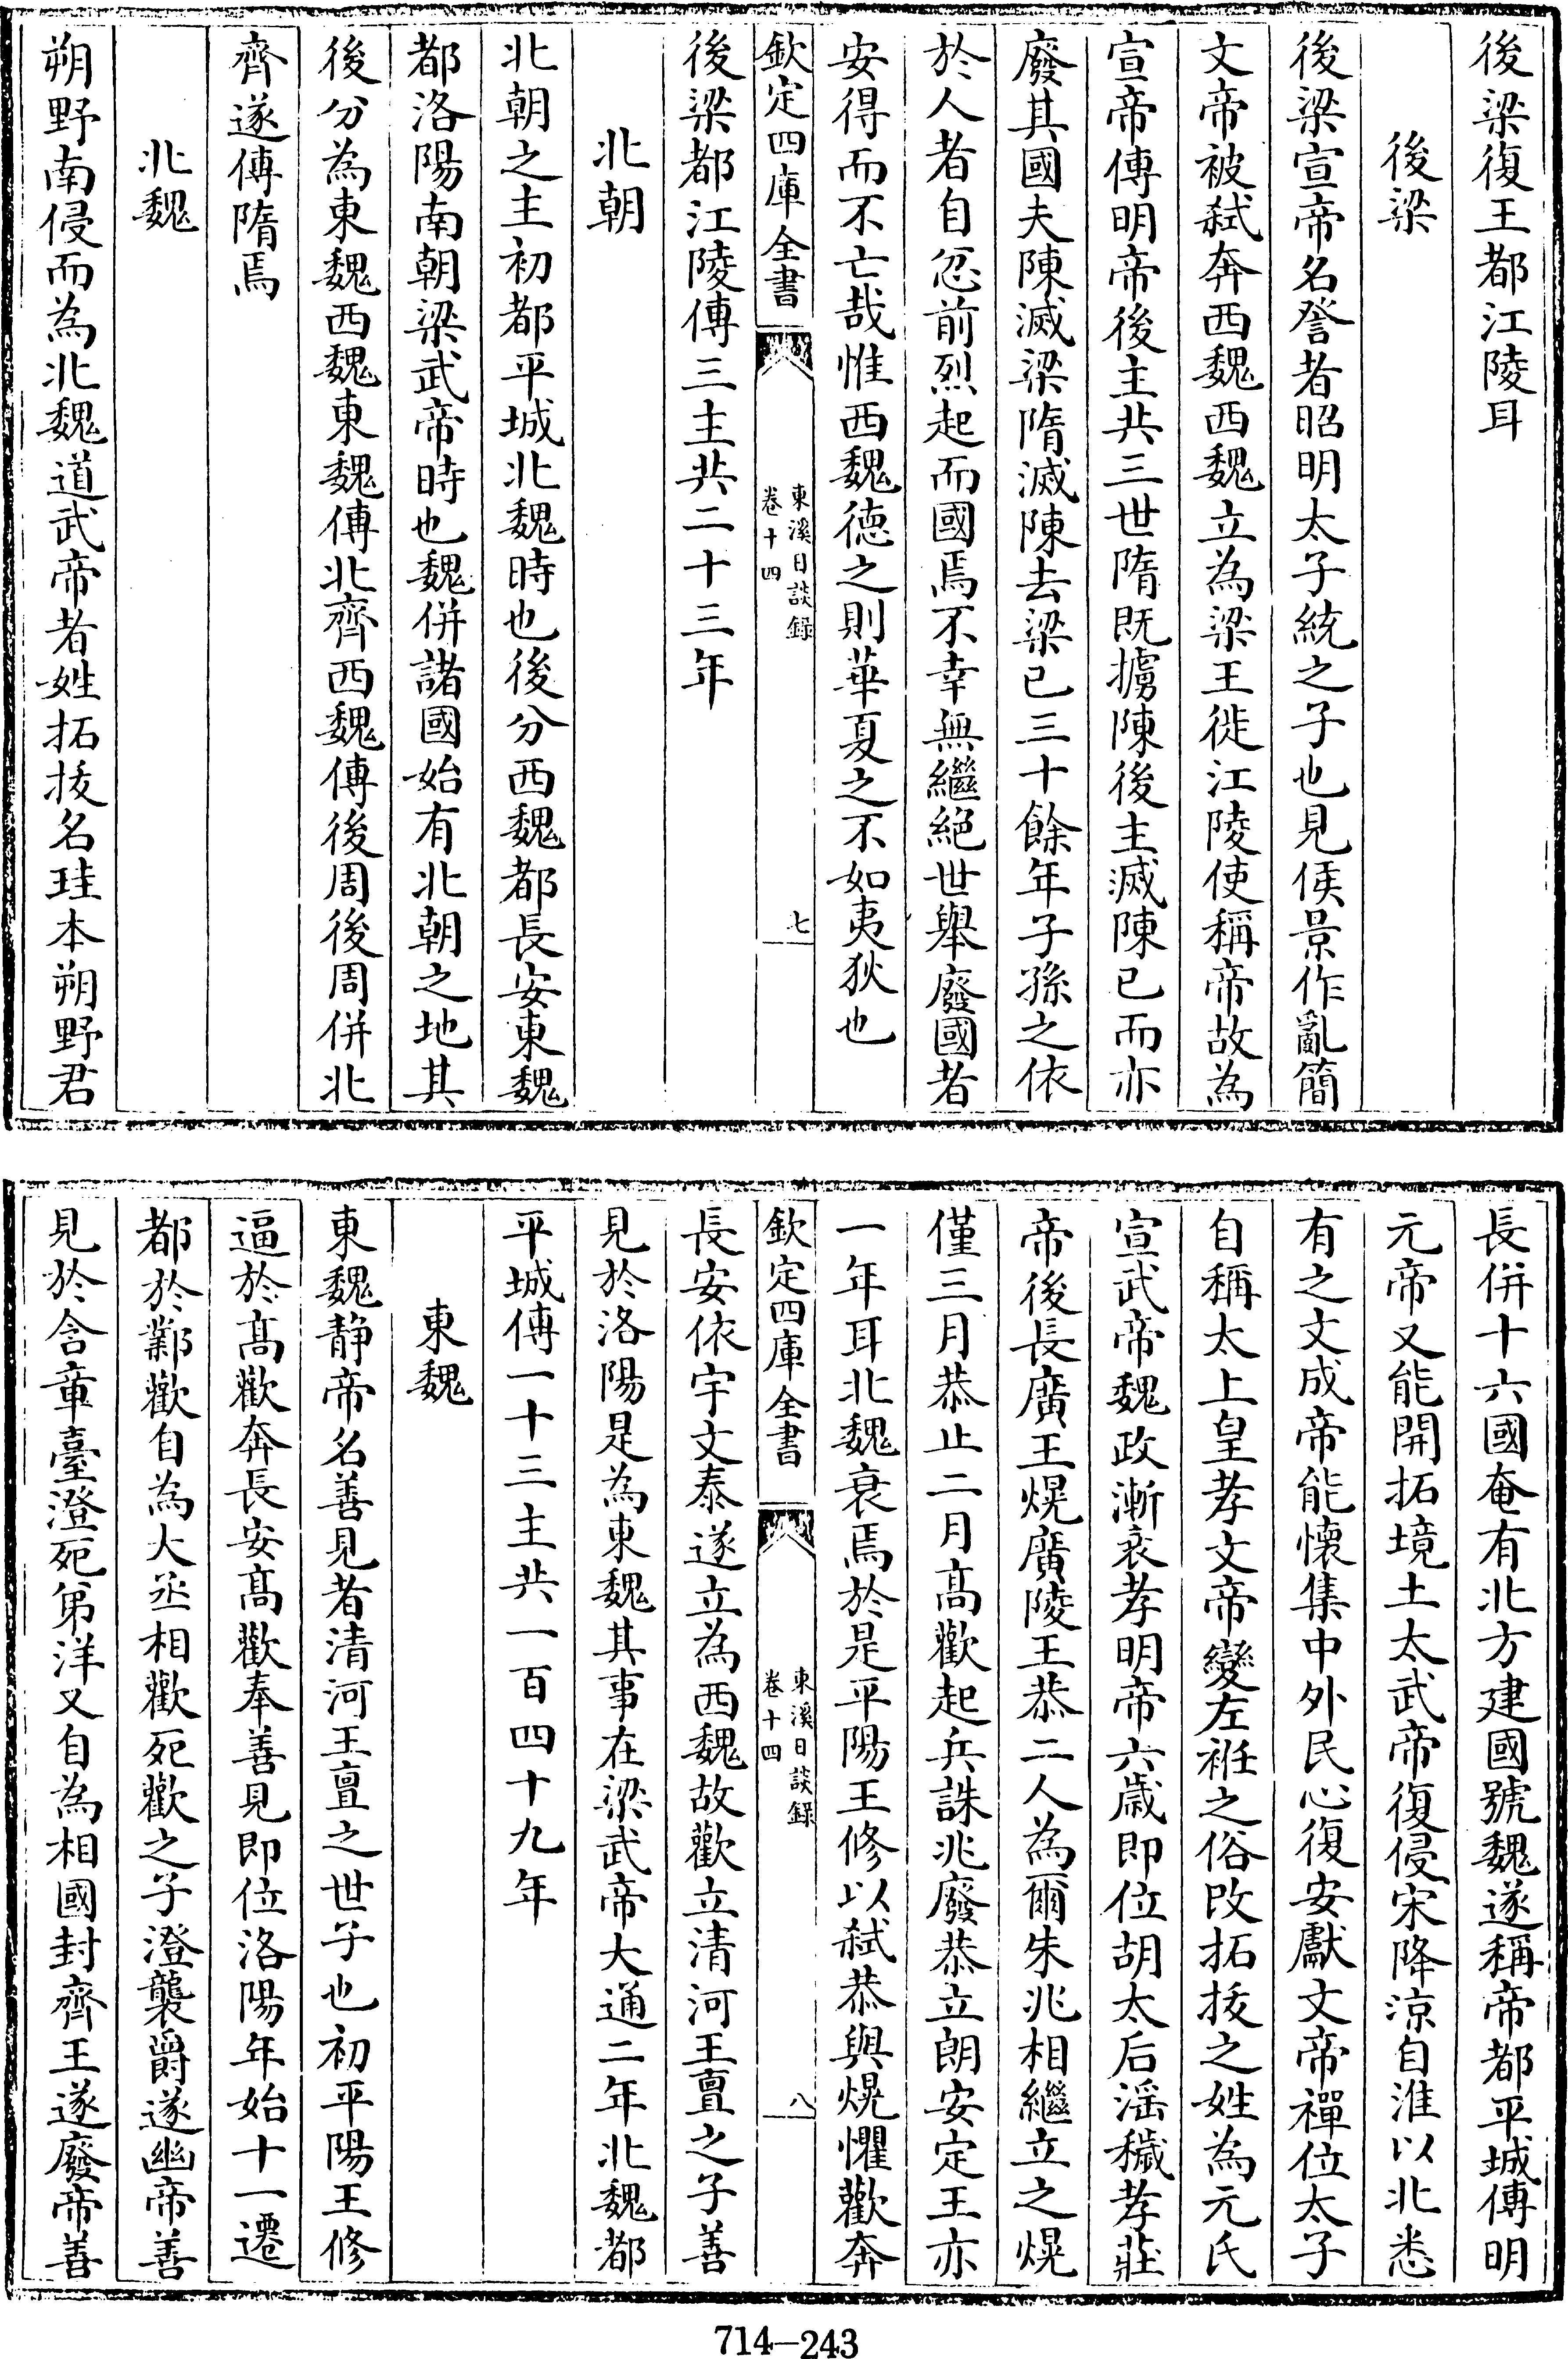 後梁復王都江陵耳
後梁
後梁宣帝名詧者昭明太子統之子也見侯景作亂簡
文帝被弑奔西魏西魏立為梁王徙江陵使稱帝故為
宣帝傳明帝後主共三世隋既擄陳後主滅陳已而亦
廢其國夫陳滅梁隋滅陳去梁已三十餘年子孫之依
於人者自忿前烈起而國焉不幸無繼絕世舉廢國者
安得而不亡哉惟西魏德之則華夏之不如夷狄也
欽定四庫全書
東溪日談録
卷十四
七
後梁都江陵傳三主共二十三年
北朝
北朝之主初都平城北魏時也後分西魏都長安東魏
都洛陽南朝梁武帝時也魏併諸國始有北朝之地其
後分為東魏西魏東魏傳北齊西魏傳後周後周併北
齊遂傳隋焉
北魏
朔野南侵而為北魏道武帝者姓拓拔名珪本朔野君
長併十六國奄有北方建國號魏遂稱帝都平城傳明
元帝又能開拓境土太武帝復侵宋降涼自淮以北悉
有之文成帝能懷集中外民心復安獻文帝禪位太子
自稱太上皇孝文帝變左袵之俗改拓拔之姓為元氏
宣武帝魏政漸衰孝明帝六歲即位胡太后滛穢孝莊
帝後長廣王熀廣陵王恭二人為爾朱兆相繼立之熀
僅三月恭止二月高歡起兵誅兆廢恭立朗安定王亦
一年耳北魏衰焉於是平陽王修以弑恭與熀懼歡奔
欽定四庫全書
東溪日談録
卷十四
八
長安依宇文泰遂立為西魏故歡立清河王亶之子善
見於洛陽是為東魏其事在梁武帝大通二年北魏都
平城傳一十三主共一百四十九年
東魏
東魏静帝名善見者清河王亶之世子也初平陽王修
逼於高歡奔長安高歡奉善見即位洛陽年始十一遷
都於鄴歡自為大丞相歡死歡之子澄襲爵遂幽帝善
見於含章臺澄死弟洋又自為相國封齊王遂廢帝善
714-243